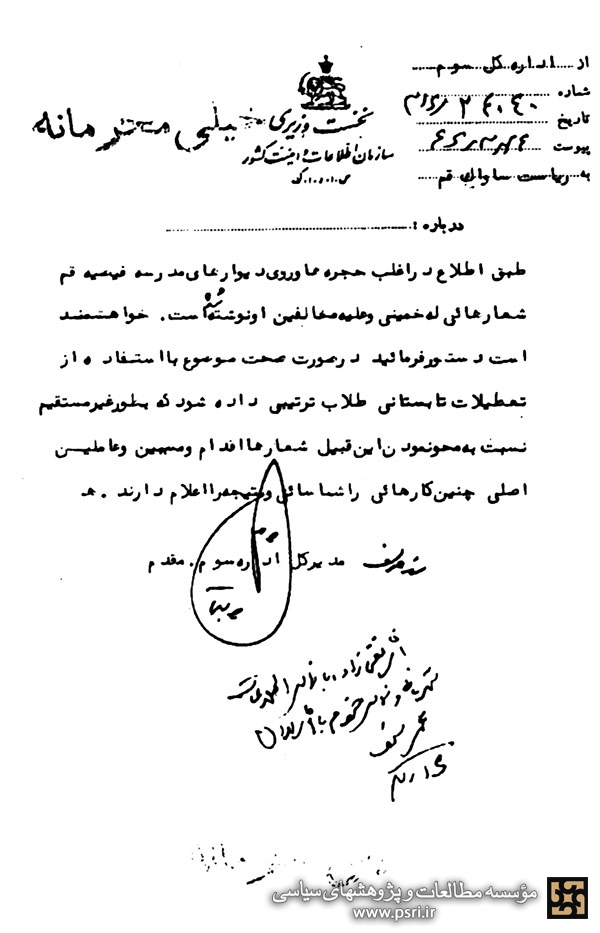 از اداره کل سوم
شماره
تاریخ
پیوست
به ریاست ساواک قم
نخست وزیری
خیلی محرمانه
سازمان اطلاعات و امنیت کشور
درباره :
طبق اطلاع در اغلب حجره ها و روی دیوارهای مدرسه فیضیه قم
شعارهائی له خمینی و علیه مخالفین او نوشته شده است . خواهشمند
است دستور فرمائید در صورت صحت موضوع با استفاده از
تعطیلات تابستانی طلاب ترتیبی داده شود که بطور غیر مستقیم
نسبت به محو نمودن این قبیل شعارها اقدام و مسببین و عاملین
اصلی چنین کارهائی را شناسائی و نتیجه را اعلام دارند . هـ
مدیر کل اداره سوم . مقدم
مؤسسه مطالعات و پژوهشهای سیاسی
www.psri.ir